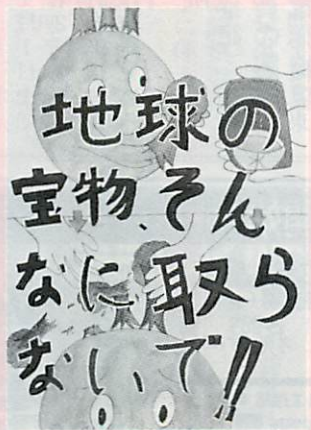 地球の
宝物、そん
なに取ら
ないで!!